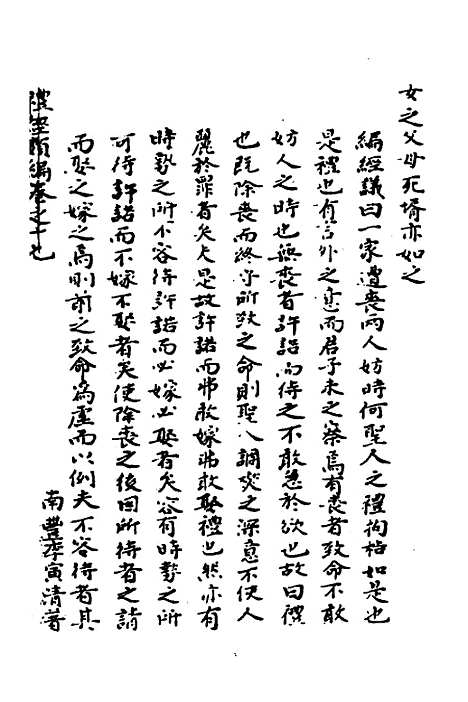 女之父母死壻亦如之
編經議曰一家遭喪兩人妨時何聖人之禮拘牯如是也
是禮也有言外之意而君子未之察焉有喪者致命不敢
妨人之時也無喪者許諾而待之不敢急於欲也故曰禮
也既除喪而終守所致之命則聖人調燮之深意不使人
麗於罪者矣夫是故許諾而弗敢嫁弗敢娶禮也然亦有
時勢之所不容待許諾而必嫁必娶者矣容有時勢之所
可待許諾而不嫁不娶者矣使除喪之後因所待者之請
而娶之嫁之焉則前之致命為虛而以例夫不容待者其
南豐李寅清著
編卷之十九